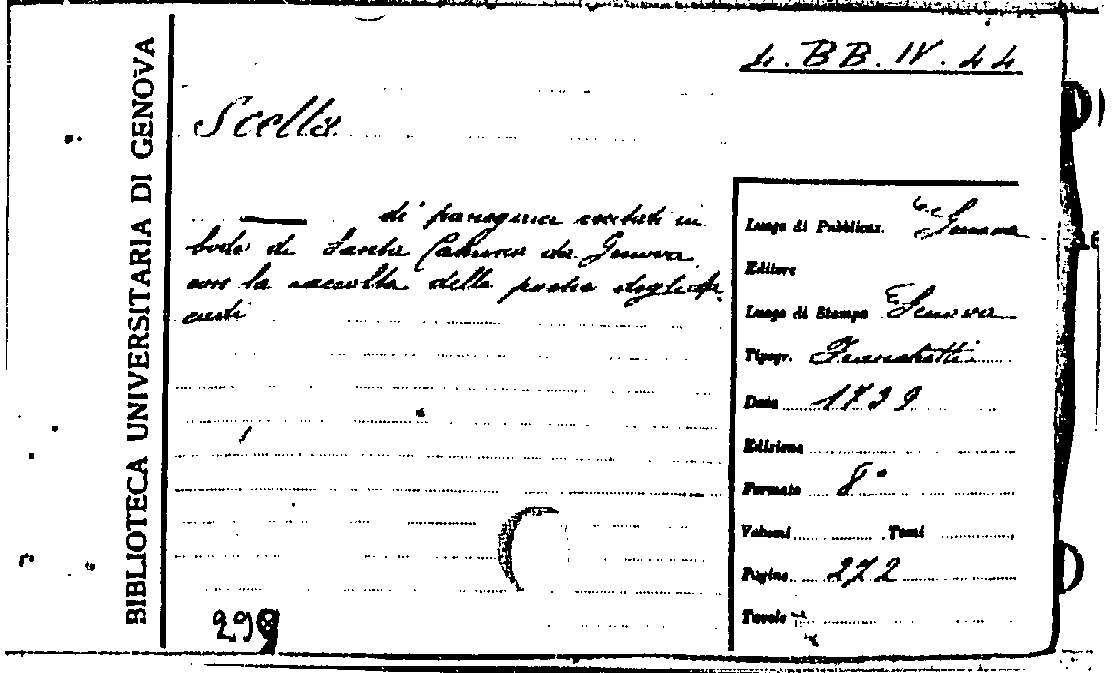 BIBLIOTECA UNIVERSITARIA DI GENOVA
4.BB.IV.44
Scelta
di panegirici recitati in
lode di Santa Caterina da Genova
con la raccolta delle poesie degli Ar
cadi
Luogo di Pubblicaz. Genova
Editore
Luogo di Stampa Genova
Tipogr. Franchelli
Data 1739
Edizione
Formato 8°
Volumi Tomi
Pagine 272
Tavole